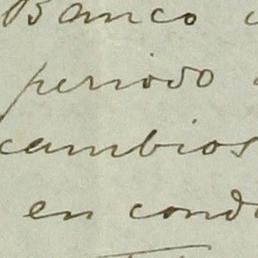 Banco
periodo
cambios
en cond